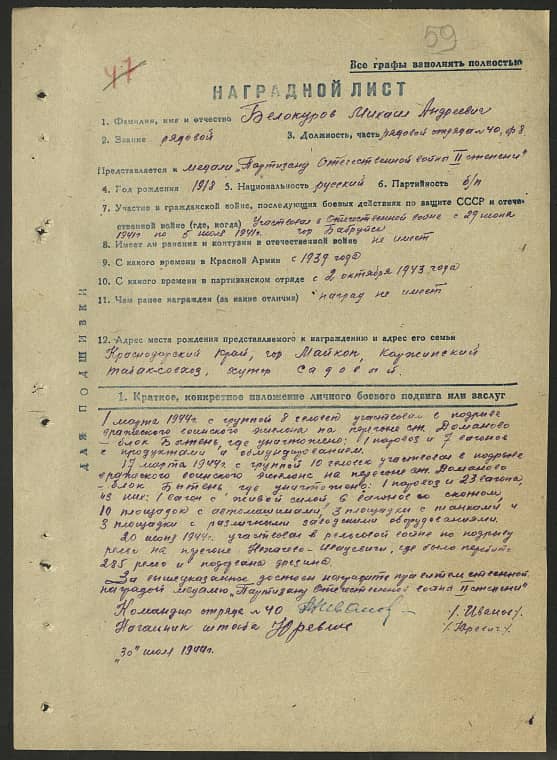 59
47
Все графы заполнять полностью
НАГРАДНОЙ ЛИСТ
1. Фамилия, имя и отчество Белокуров Михаил Андреевич
2. Звание рядовой 3. Должность, часть рядовой отряда №40, ф 8.
Представляется к медали „Партизану Отечественной войны II степени"
4. Год рождения 1918 5. Национальность русский 6. Партийность б/п
7. Участие в гражданской войне, последующих боевых действиях по защите СССР и отече-
ственной войне (где, когда) Участвовал в Отечественной войне с 29 июня
1941г по 5 июля 1941г. гор Бабруйск
8. Имеет ли ранения и контузии в отечественной войне не имеет
9. С какого времени в Красной Армии с 1939 года
10. С какого времени в партизанском отряде с 2 октября 1943 года
11. Чем ранее награжден (за какие отличия) наград не имеет
12. Адрес места рождения представляемого к награждению и адрес его семьи
Краснодарский край, гор Майкоп,
табак-совхоз, хутор Садовый.
ДЛЯ ПОДШИВКИ
1. Краткое, конкретное изложение личного боевого подвига или заслуг
1 марта 1944г с группой 8 человек участвовал в подрыве
вражеского воинского эшелона на перегоне ст. Доманово
– блок Бытень, где уничтожено: 1 паровоз и 7 вагонов
с продуктами и обмундированием.
17 марта 1944г с группой 10 человек участвовал в подрыве
вражеского воинского эшелона на перегоне ст. Доманово
– блок Бытень где уничтожено: 1 паровоз и 23 вагона,
из них: 1 вагон с живой силой, 6 вагонов со скотом,
10 площадок с автомашинами, 3 площадки с танками и
3 площадки с различными заводскими оборудованиями.
20 июня 1944г. участвовал в рельсовой войне по подрыву
рельс на перегоне Нехачево-Ивацевичи, где было перебито
285 рельс и подорвана дрезина.
За вышеуказанное достоин наградить правительственной
наградой медалью „Партизану Отечественной войны II степени"
Командир отряда №40 Иванов /Иванов/.
Начальник штаба Юревич /Юревич/.
„30" июля 1944г.